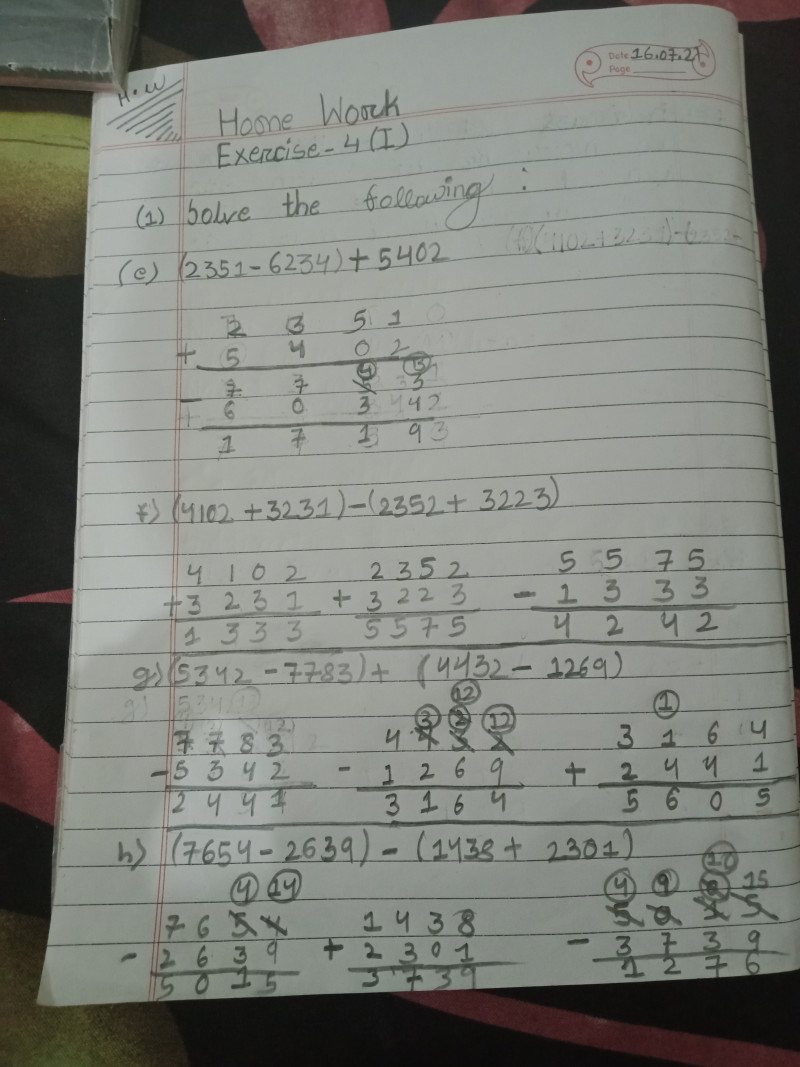 H.W
Date 16.07.21
Page
Home Work
Exercise-4 (I)
(1) Solve the following :
(e) (2351-6234)+5402
2 3 5 1
+ 5 4 0 2
4 13
7 7 5 3
- 6 0 3 4
1 7 1 9
f) (4102+3231)-(2352+3223)
4 1 0 2 2 3 5 2 5 5 7 5
+3 2 3 1 + 3 2 2 3 - 1 3 3 3
1 3 3 3 5 5 7 5 4 2 4 2
g) (5342-7783)+(4432-1269)
12
3 2 12 1
7 7 8 3 4 4 3 2 3 1 6 4
-5 3 4 2 - 1 2 6 9 + 2 4 4 1
2 4 4 1 3 1 6 4 5 6 0 5
h) (7654-2639)-(1438+2301)
10
4 14 4 9 0 15
7 6 5 4 1 4 3 8 5 0 1 5
- 2 6 3 9 + 2 3 0 1 - 3 7 3 9
5 0 1 5 3 7 3 9 1 2 7 6